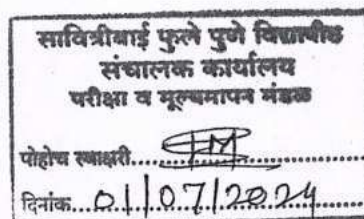 सावित्रीबाई फुले पुणे विद्यापीठ
संचालक कार्यालय
परीक्षा व मूल्यमापन मंडळ
पोहोच स्वाक्षरी..........
दिनांक...01/07/2024